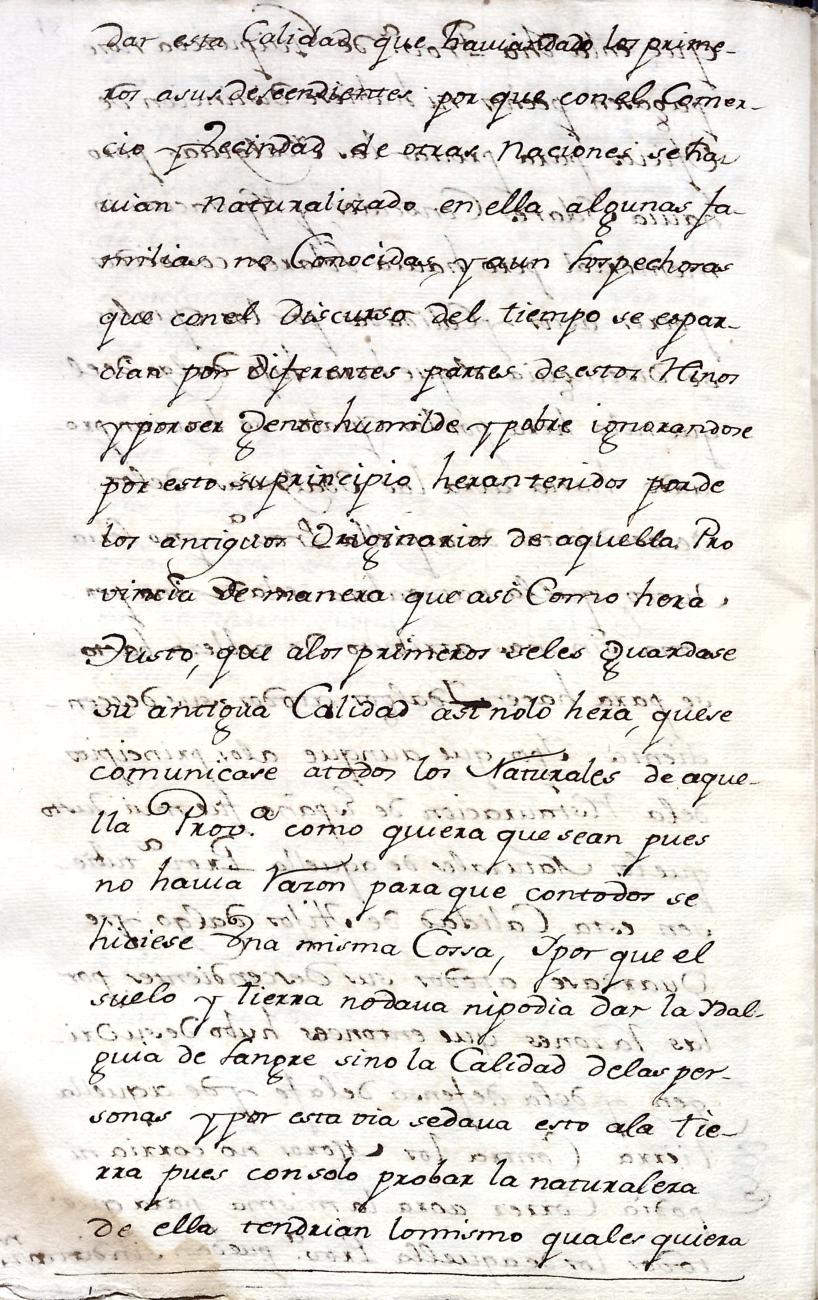 dar esta Calidad que haviandado los prime-
ros asus descendientes por que con el Comer-
cio y Vecindad de otras Naciones se ha-
vian naturalizado en ella algunas fa-
milias no Conocidas, y aun sospechosas
que con el Discurso del tiempo se espar-
cian por diferentes partes de estos Rinos
y por ser Gente humilde y pobre ignorandose
por esto su principio heran tenidos por de
los antiguos Originarios de aquella Pro
vincia De manera que asi Como hera
Justo, que alos primeros seles Guardase
su antigua Calidad asi nolo hera, quese
comunicase atodos los Naturales de aque-
lla Prov.ª como quiera que sean pues
no havia Razon para que contodos se
hubiese Vna misma Cossa, Ypor que el
suelo y tierra nodava nipodia dar la Ydal-
guia de sangre sino la Calidad delas per-
sonas y por esta via sedava esto ala tie-
rra pues consolo probar la naturaleza
de ella tendrian lomismo quales quiera